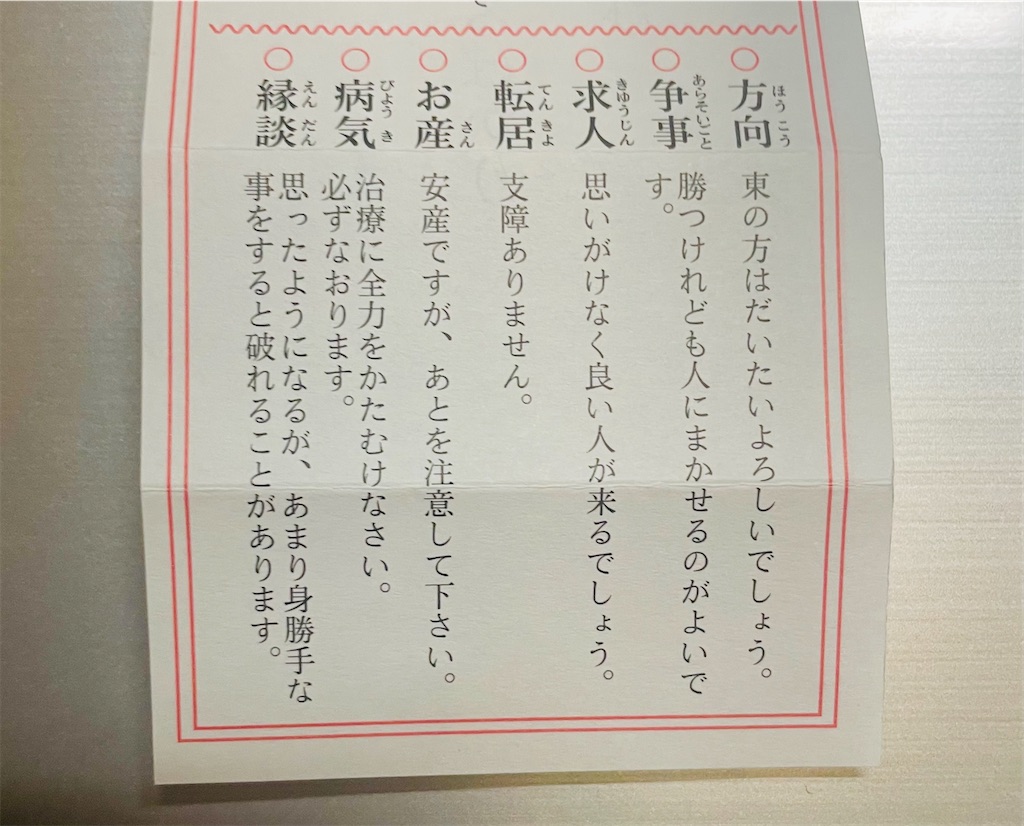 ○方向 ほうこう
東の方はだいたいよろしいでしょう。
○争事 あらそいごと
勝つけれども人にまかせるのがよいで
す。
○求人 きゆうじん
思いがけなく良い人が来るでしょう。
○転居 てんきよ
支障ありません。
○お産 さん
安産ですが、あとを注意して下さい。
○病気 びようき
治療に全力をかたむけなさい。
必ずなおります。
○縁談 えんだん
思ったようになるが、あまり身勝手な
事をすると破れることがあります。